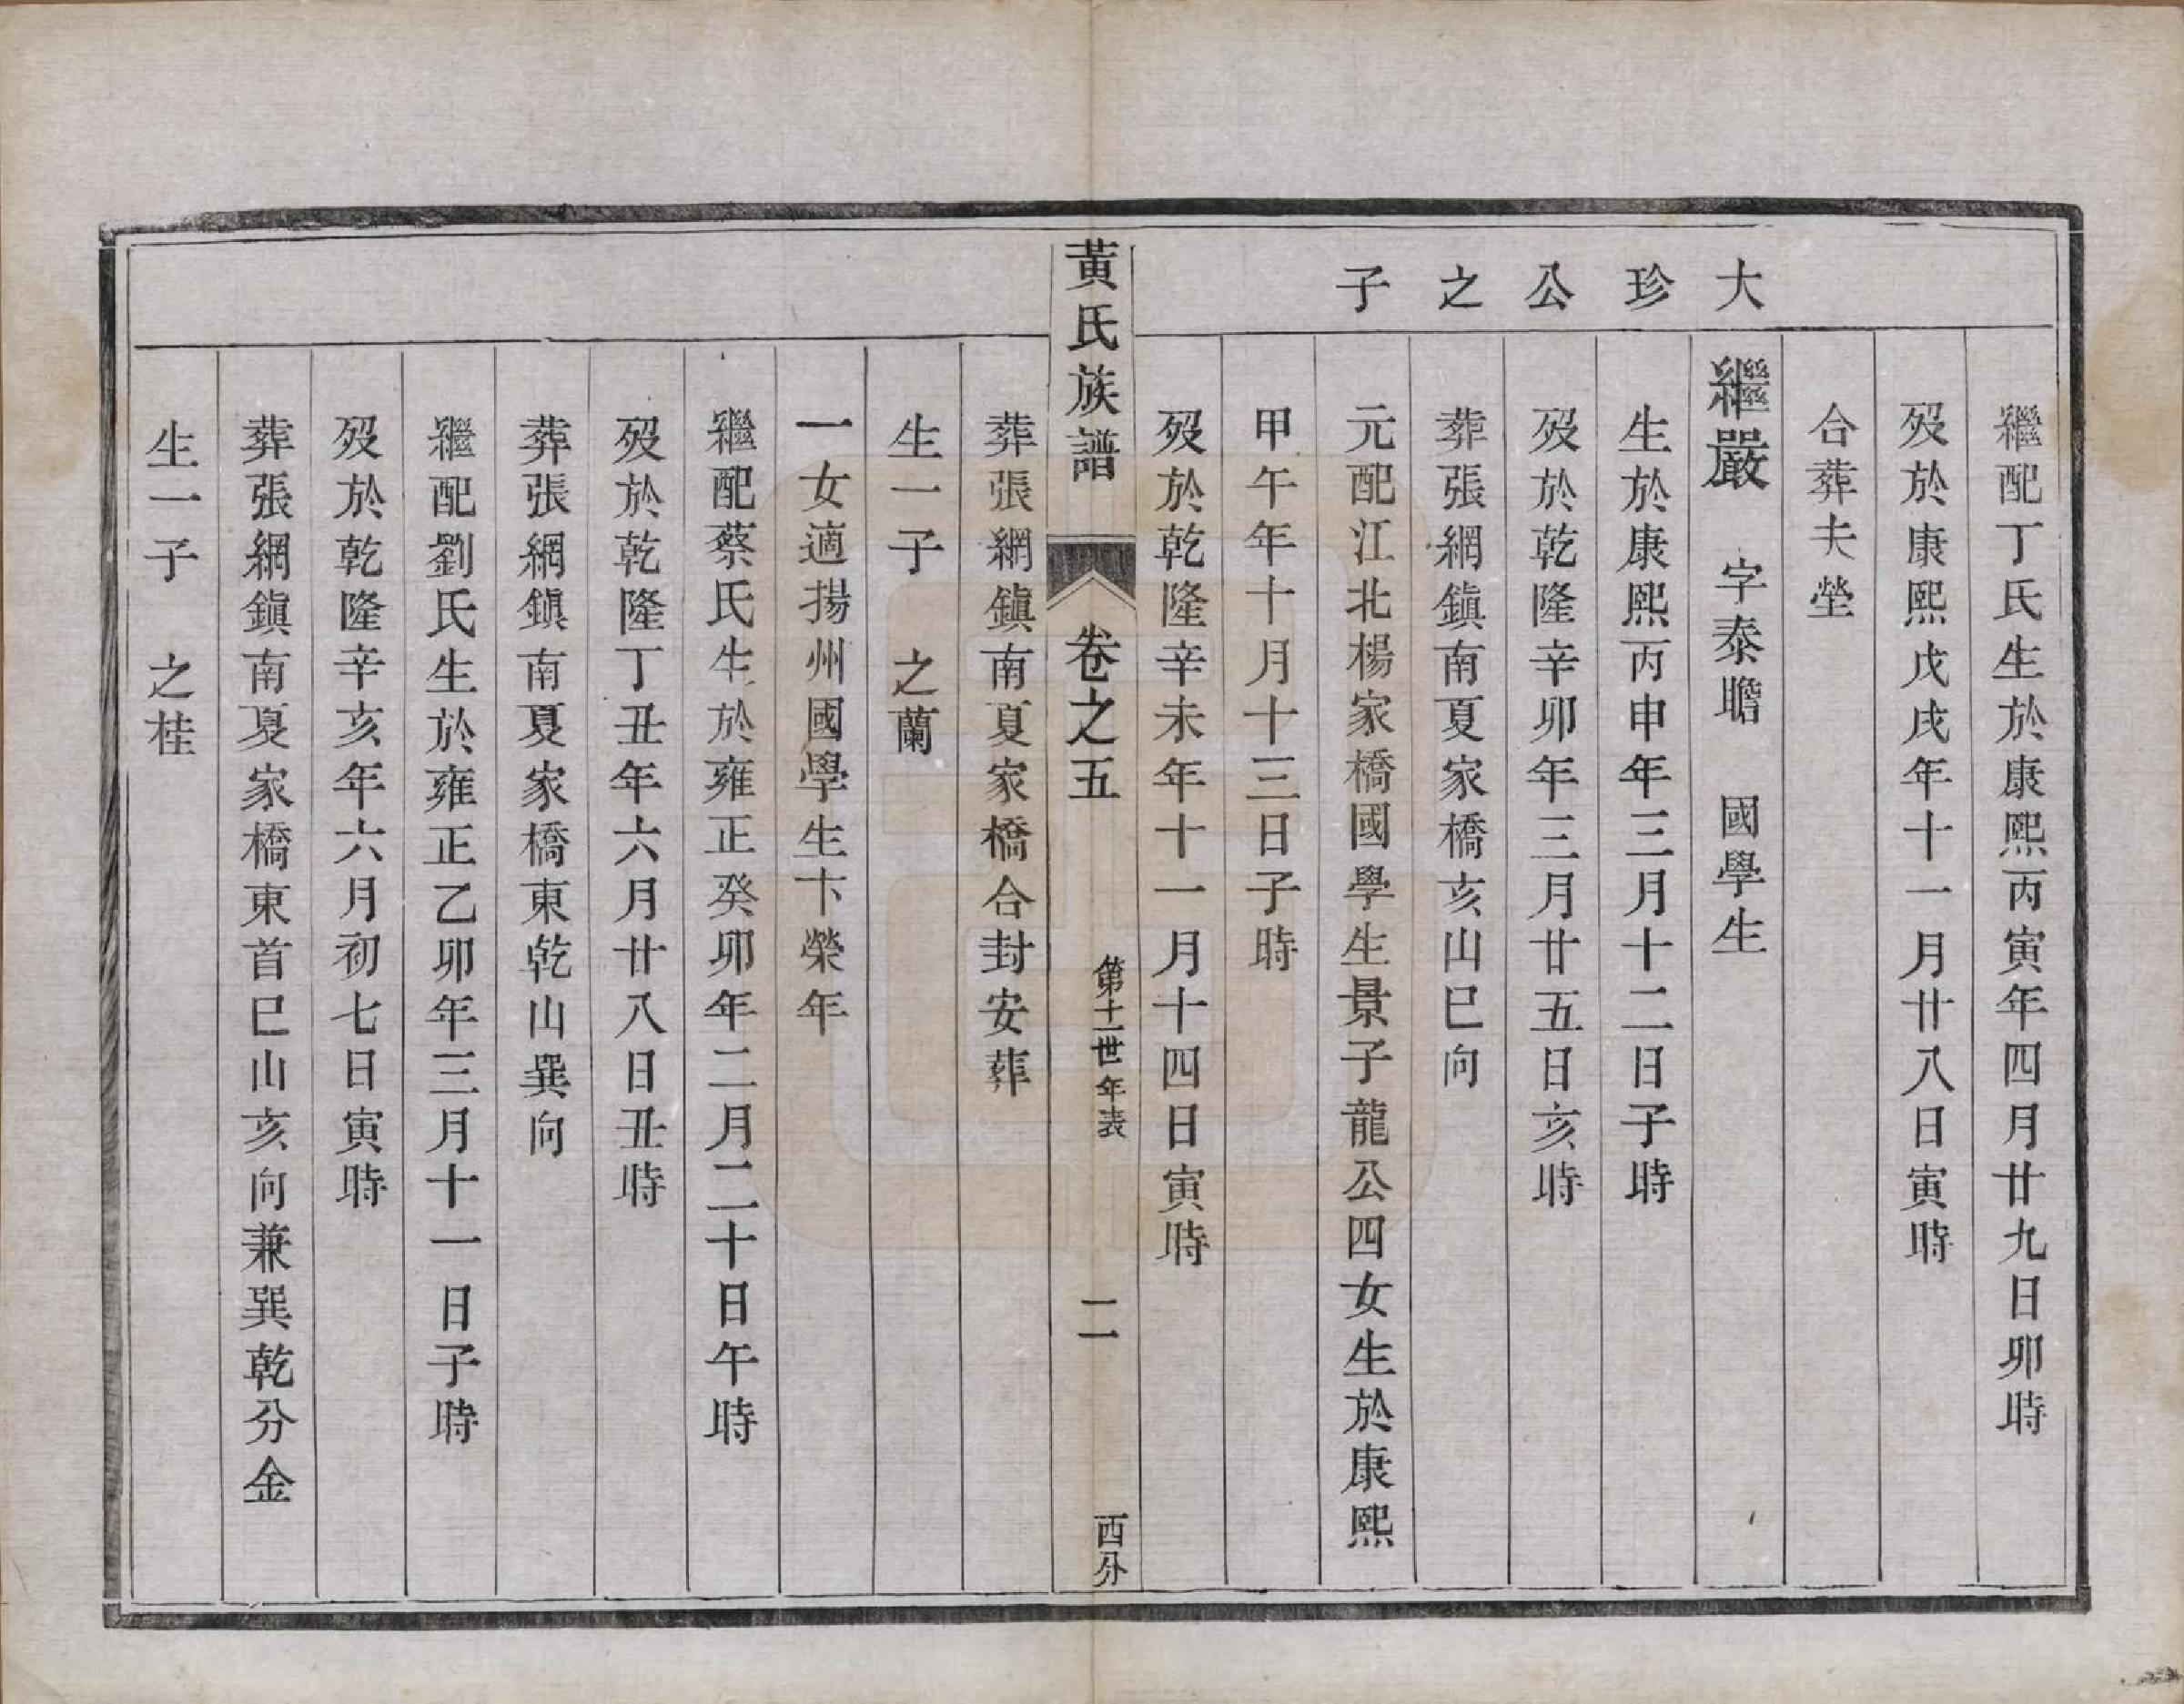 繼配丁氏生於康熙丙寅年四月廿九日卯時
歿於康熙戊戌年十一月廿八日寅時
合葬夫塋
大珍公之子
繼嚴 字泰瞻 國學生
生於康熙丙申年三月十二日子時
歿於乾隆辛卯年三月廿五日亥時
葬張網鎮南夏家橋亥山巳向
元配江北楊家橋國學生景子龍公四女生於康熙
甲午年十月十三日子時
歿於乾隆辛未年十一月十四日寅時
黃氏族譜 卷之五 第十一世年表 二 西分
葬張網鎮南夏家橋合封安葬
生一子 之蘭
一女適揚州國學生卞榮年
繼配蔡氏生於雍正癸卯年二月二十日午時
歿於乾隆丁丑年六月廿八日丑時
葬張網鎮南夏家橋東乾山巽向
繼配劉氏生於雍正乙卯年三月十一日子時
歿於乾隆辛亥年六月初七日寅時
葬張網鎮南夏家橋東首巳山亥向兼巽乾分金
生一子 之桂